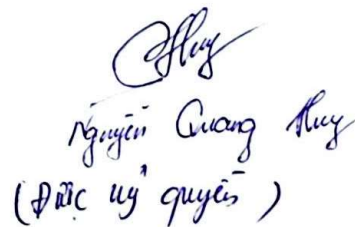 Huy
Nguyễn Quang Huy
(Được uỷ quyền)